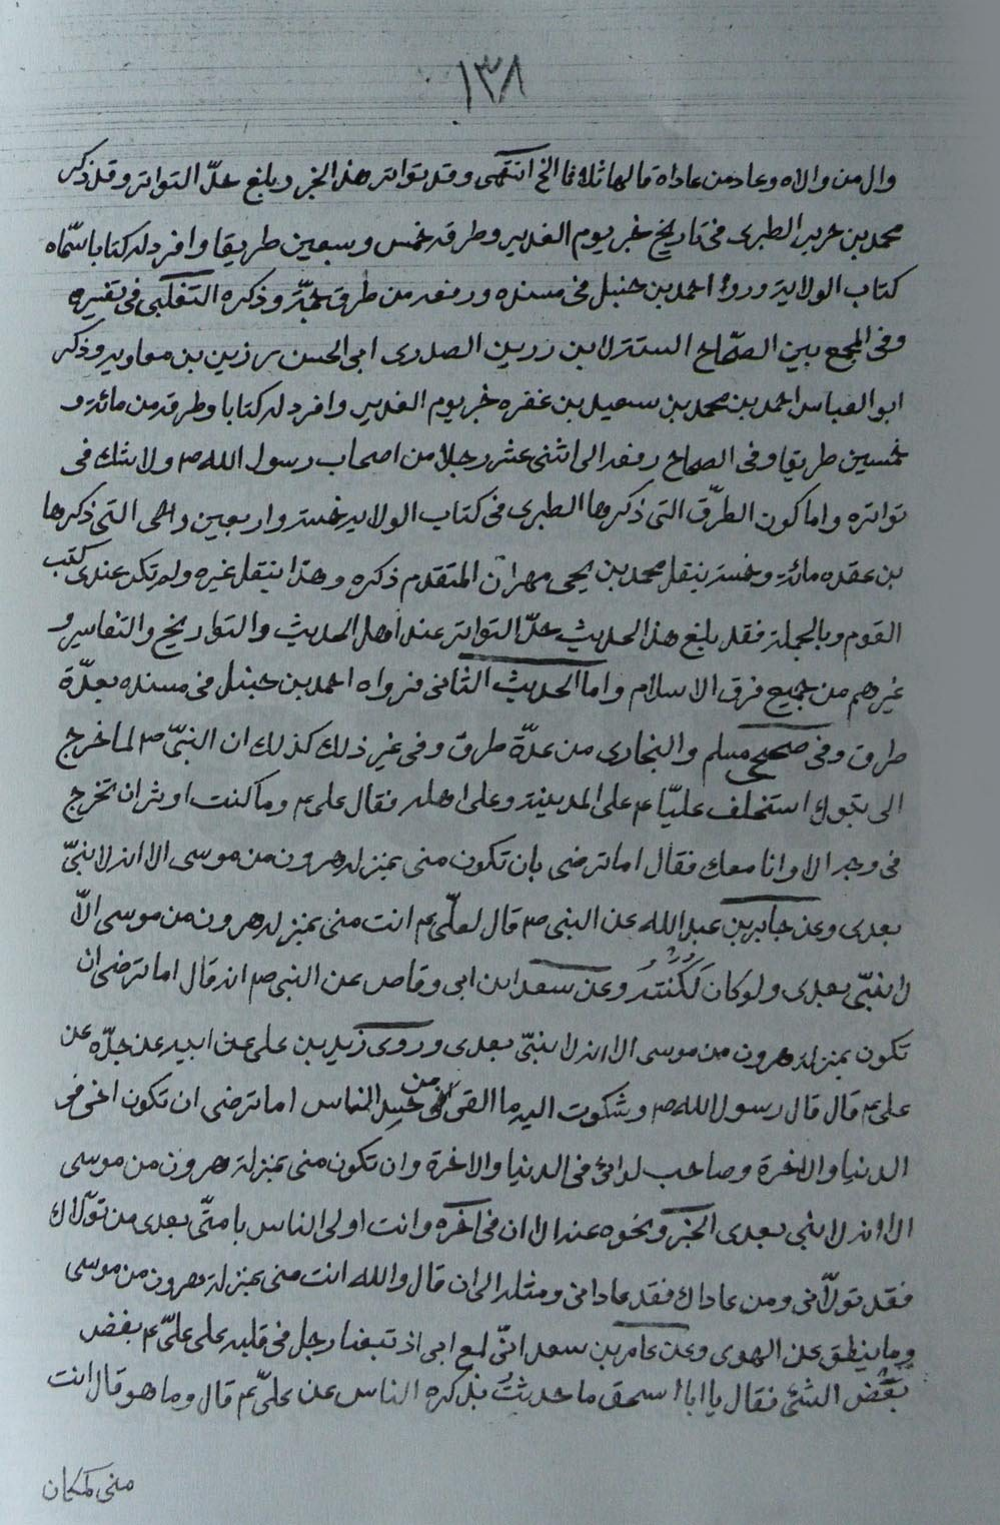 ١٣٨
وال من والاه وعاد من عاداه قالها ثلاثا الخ انتهى وقد تواتر هذا الخبر وبلغ حدّ التواتر وقد ذكر
محمد بن جرير الطبرى فى تاريخ خبر يوم الغدير وطرقه خمس وسبعين طريقا وافرد له كتابا سمّاه
كتاب الولاية ورواه احمد بن حنبل فى مسنده ورفعه من طرق جمّة وذكره الثعلبى فى تفسيره
وفى الجمع بين الصّحاح الستة لابن رزين العبدرى ابى الحسن رزين بن معاويه وذكر
ابو العباس احمد بن محمد بن سعيد بن عقده خبر يوم الغدير وافرد له كتابا وطرقه من مائة و
خمسين طريقا وفى الصحاح رفعه الى اثنى عشر رجلا من اصحاب رسول الله ص ولا شك فى
تواتره واما كون الطرّق التى ذكرها الطبرى فى كتاب الولايه خمسة واربعين والى التى ذكرها
بن عقده مائة وخمسة ينقل محمد بن يحيى مهران المتقدم ذكره وهذا ينقل غيره ولم تكن عندى كتب
القوم وبالجملة فقد بلغ هذا الحديث حدّ التواتر عند أهل الحديث والتواريخ والتفاسير و
غيرهم من جميع فرق الاسلام واما الحديث الثانى فرواه احمد بن حنبل فى مسنده بعدّة
طرق وفى صحيحى مسلم والبخارى من عدّة طرق وفى غير ذلك كذلك ان النبىّ ص لما خرج
الى تبوك استخلف عليّا ع على المدينة وعلى اهله فقال على ع وما كنت اوثر ان تخرج
فى وجه الا وانا معك فقال اما ترضى بان تكون منى بمنزلة هرون من موسى الا انه لا نبىّ
بعدى وعن جابر بن عبد الله عن النبى ص قال لعلّى ع انت منى بمنزلة هرون من موسى الاّ
لا نبّى بعدى ولو كان لَكُنْتَهُ وعن سعد ابن ابى وقاص عن النبى ص انه قال اما ترضى ان
تكون بمنزلة هرون من موسى الا انه لا نبىّ بعدى وروى زيد بن على عن ابيه عن جدّه عن
على ع قال قال رسول الله ص وشكوت اليه ما القى من حسد الناس اما ترضى ان تكون اخى فى
الدنيا والاخرة وصاحب لوائى فى الدنيا والاخرة وان تكون منى بمنزلة هرون من موسى
الا انه لا نبى بعدى الخبر ونحوه عنه الا ان فى اخره وانت اولى الناس بامتّى بعدى من تولّاك
فقد تولّانى ومن عاداك فقد عادانى ومثله الى ان قال والله انت منى بمنزلة هرون من موسى
وما ينطق عن الهوى وعن عامر بن سعد انّى لمع ابى اذ تبعنا رجل فى قلبه على علىّ ع بغض
بَعْض الشئ فقال يا ابا اسحق ما حديثٌ بذكره الناس عن علىّ ع قال وما هو قال انت
منى كمكان